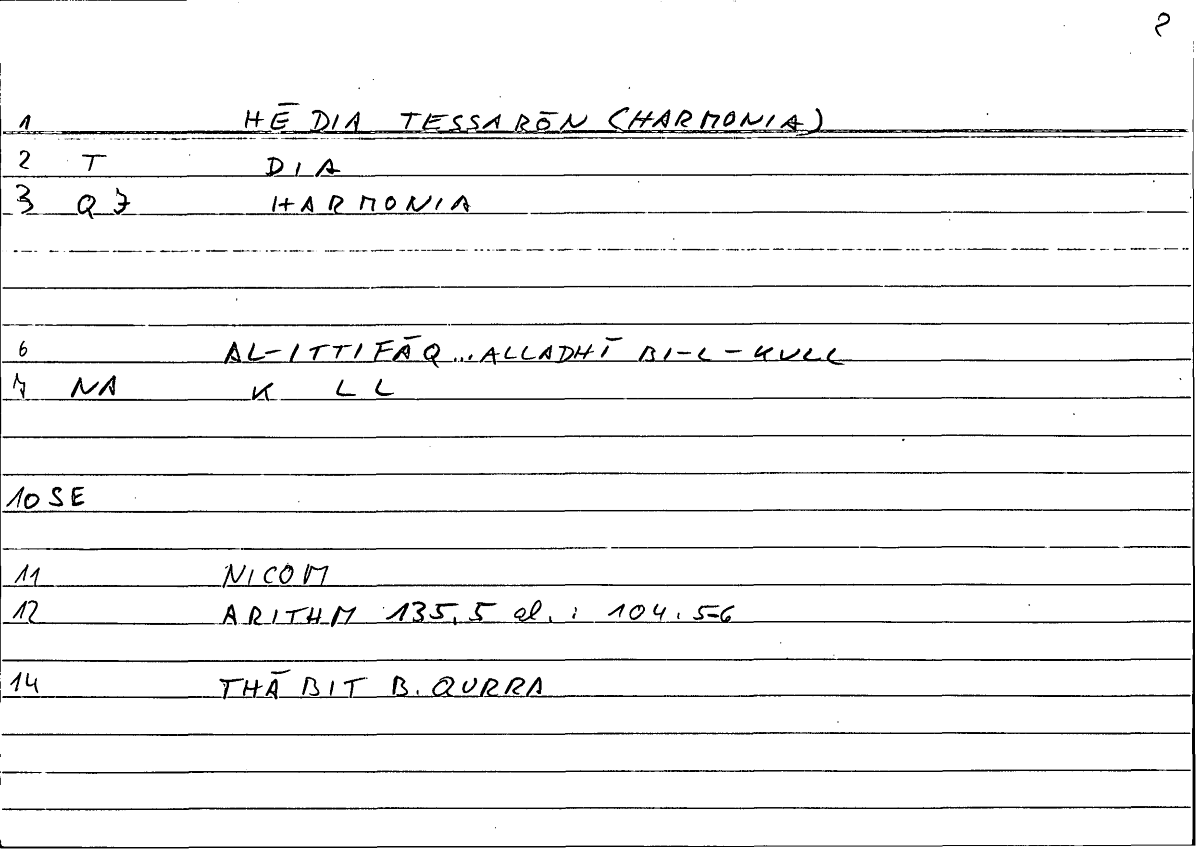 2
1 HĒ DIA TESSARŌN (HARMONIA)
2 T DIA
3 Q J HARMONIA
6 AL-ITTIFĀQ...ALLADHĪ BI-L-KULL
7 NA K LL
10 SE
11 NICOM
12 ARITHM 135,5 al. : 104.5-6
14 THĀBIT B. QURRA